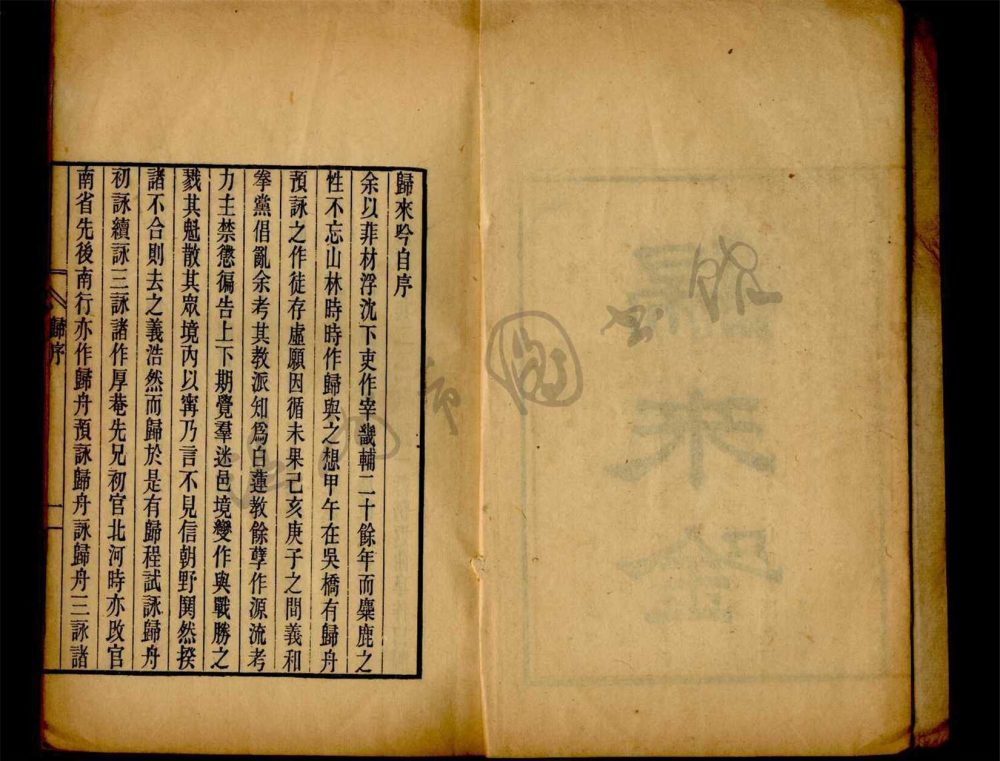 歸來吟自序
余以菲材浮沈下吏作宰畿輔二十餘年而麋鹿之
性不忘山林時時作歸與之想甲午在吳橋有歸舟
預詠之作徒存虛願因循未果己亥庚子之間義和
拳黨倡亂余考其教派知爲白蓮教餘孽作源流考
力主禁懲徧告上下期覺羣迷邑境變作與戰勝之
戮其魁散其眾境內以甯乃言不見信朝野鬨然揆
諸不合則去之義浩然而歸於是有歸程試詠歸舟
初詠續詠三詠諸作厚菴先兄初官北河時亦改官
南省先後南行亦作歸舟預詠歸舟詠歸舟三詠諸
歸序
一